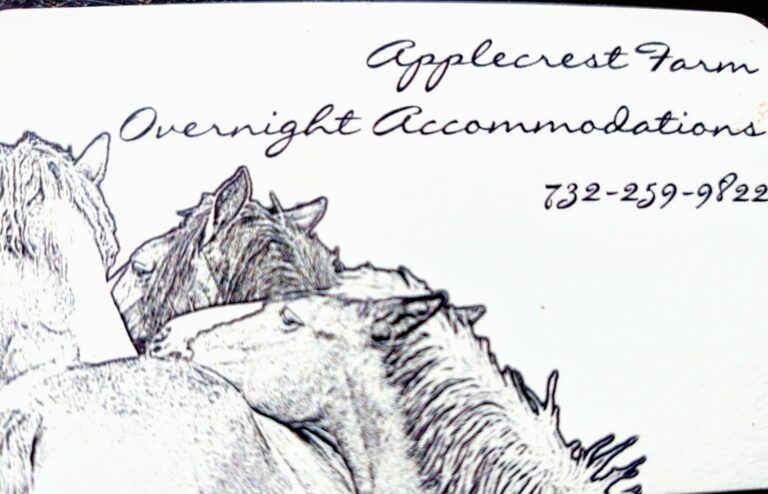 Applecrest Farm
Overnight Accommodations
732-259-9822